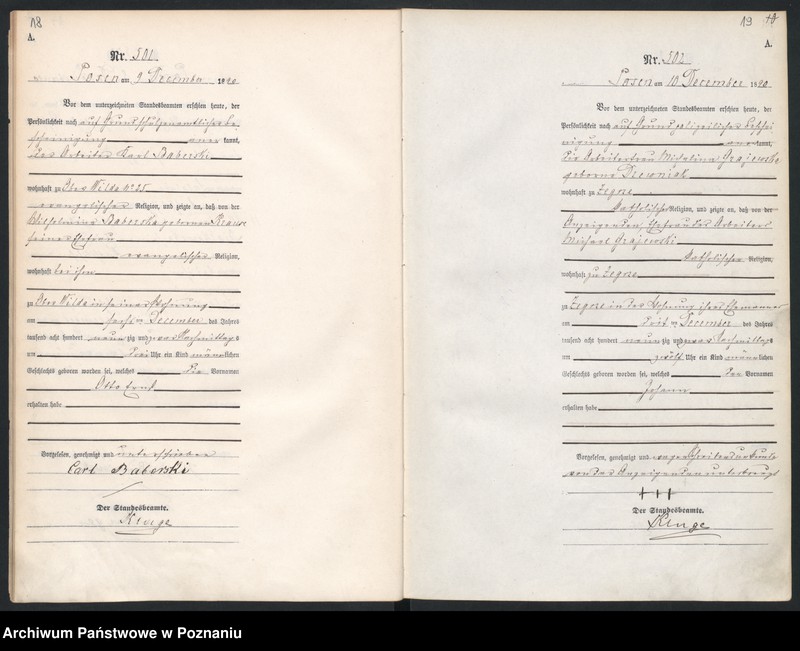 18
A.
Nr. 501
Posen am 9 December 1890
Vor dem unterzeichneten Standesbeamten erschien heute, der
Persönlichkeit nach auf Grund
scheinigung kannt,
der Arbeiter Karl Baberski
wohnhaft zu Ober Wilda No 25
evangelischer Religion, und zeigte an, daß von der
Wilhelmine Baberska geborenen Krause
seiner Ehefrau
evangelischer Religion,
wohnhaft bei ihm
zu Ober Wilda in seiner Wohnung
am December des Jahres
tausend acht hundert neunzig und Nachmittags
um drei Uhr ein Kind männlichen
Geschlechts geboren worden sei, welches die Vornamen
Otto Ernst
erhalten habe
Vorgelesen, genehmigt und unterschrieben
Carl Baberski
Der Standesbeamte.
Kluge
19
A.
Nr. 502
Posen am 10 December 1890
Vor dem unterzeichneten Standesbeamten erschien heute, der
Persönlichkeit nach auf Grund polizeilicher beschei
nigung kannt,
die Arbeiterfrau Michalina Grajewska
geborene Drewniak
wohnhaft zu Zegrze
katholischer Religion, und zeigte an, daß von der
Anzeigenden, Ehefrau des Arbeiters
Michael Grajewski
katholischer Religion,
wohnhaft zu Zegrze
zu Zegrze in der Wohnung ihres Ehemannes
am December des Jahres
tausend acht hundert neunzig und Nachmittags
um zwölf Uhr ein Kind männlichen
Geschlechts geboren worden sei, welches den Vornamen
Johann
erhalten habe
Vorgelesen, genehmigt und wegen Schreibensunkunde
von der Anzeigenden unterkreuzt
+++
Der Standesbeamte.
Kluge
Archiwum Państwowe w Poznaniu